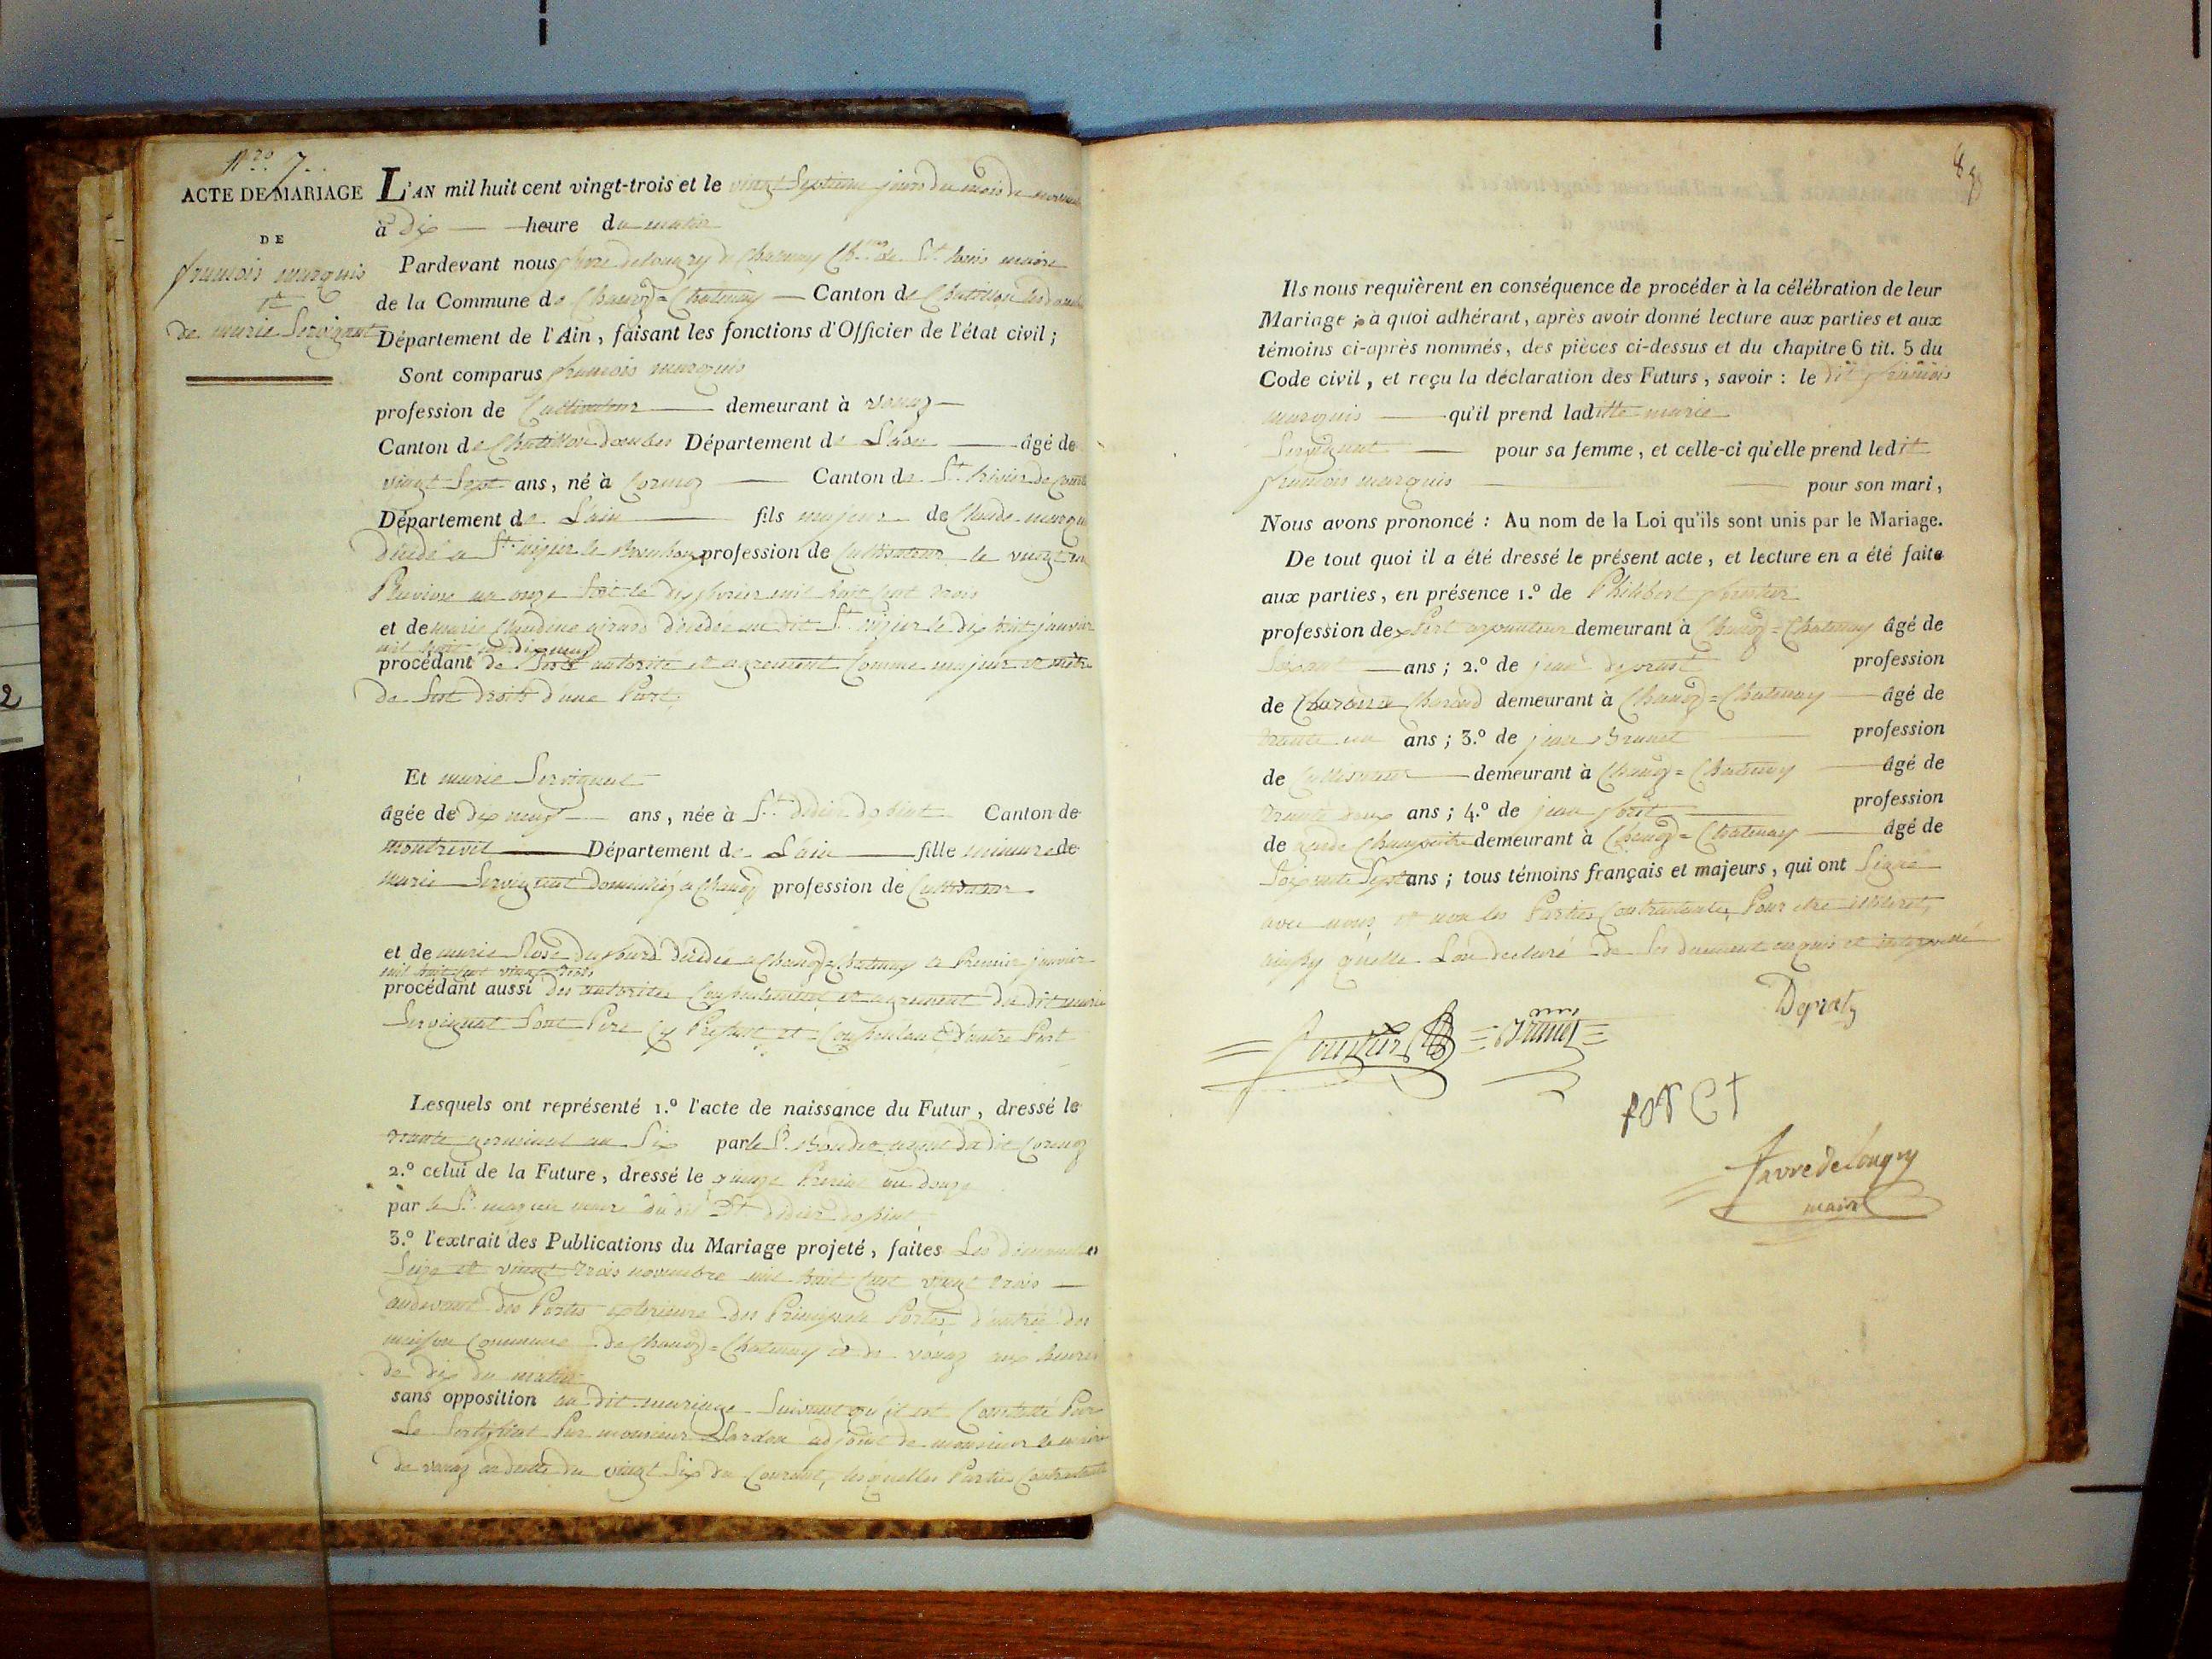 N.ro 7..
ACTE DE MARIAGE
DE
francois marquis
et
de marie Servignat
L'AN mil huit cent vingt-trois et le vingt Septieme jours du mois de
à dix heure du matin
Pardevant nous favre delongry de Chatenay Ch.er de St. louis maire
de la Commune de Chanoz=Chatenay Canton de Chatillon les
Département de l'Ain, faisant les fonctions d'Officier de l'état civil;
Sont comparus francois marquis
profession de Cultivateur demeurant à vonaz
Canton de Chatillon dombes Département de L'ain âgé de
vingt Sept ans, né à Cormoz Canton de St. trivier de
Département de L'ain fils majeur de Claude
décédé a St. nizier le Bouchoux profession de Cultivateur le vingt un
Pluviose an onze Soit le dix fevrier mil huit Cent trois
et de marie Claudine girard décédée au dit St. nizier le dix huit janvier
mil huit cent dix neuf
procédant de Sont autorité et agrement Comme majeur et
de Sest droits d'une Part
Et marie Servignat
âgée de dix neuf ans, née à St. didier Canton de
montrevel Département de L'ain fille mineure de
marie Servignat Domicilié a Chanoz profession de Cultivateur
et de marie Rose décédée a Chanoz=Chatenay le Premier janvier
mil huit cent vingt trois
procédant aussi des autorités Consentement et agrement du dit marie
Servignat Sont Pere Cy Present et Consentant D'autre Part
Lesquels ont représenté 1.º l'acte de naissance du Futur, dressé le
trante germinal an Six par le Sr. agent du dit Cormoz
2.º celui de la Future, dressé le quinze Prerial an douze
par le Sr. maire du dit St. didier
3.º l'extrait des Publications du Mariage projeté, faites Les dimanches
Seize et vingt trois novembre mil huit Cent vingt trois
audevant des Portes exterieure des Principale Portes d'entrée des
maison Commune de Chanoz=Chatenay et de vonaz aux heures
de dix du matin
sans opposition au dit mariage Suivant qu'il est Constaté Par
Le Sertificat Par monsieur adjoint de monsieur le maire
de vonaz en datte du vingt Six du Courant, lesquelles Parties Contractante
Ils nous requièrent en conséquence de procéder à la célébration de leur
Mariage; à quoi adhérant, après avoir donné lecture aux parties et aux
témoins ci-après nommés, des pièces ci-dessus et du chapitre 6 tit. 5 du
Code civil, et reçu la déclaration des Futurs, savoir: le dit francois
marquis qu'il prend laditte marie
Servignat pour sa femme, et celle-ci qu'elle prend ledit
francois marquis pour son mari,
Nous avons prononcé: Au nom de la Loi qu'ils sont unis par le Mariage.
De tout quoi il a été dressé le présent acte, et lecture en a été faite
aux parties, en présence 1.º de Philibert
profession dexpert arpanteur demeurant à Chanoz=Chatenay âgé de
ans; 2.º de jean profession
de demeurant à Chanoz=Chatenay âgé de
trante un ans; 3.º de jean Brunet profession
de Cultivateur demeurant à Chanoz=Chatenay âgé de
trante deux ans; 4.º de jean foret profession
de garde Champaitre demeurant à Chanoz=Chatenay âgé de
Soixante Sept ans; tous témoins français et majeurs, qui ont Signé
avec nous et non les Parties Contractante, Pour etre illiteret,
ainsy quelle L'on declaré de Ses dument enquis et interpellé
Brunet
forest
favre delongry
maire